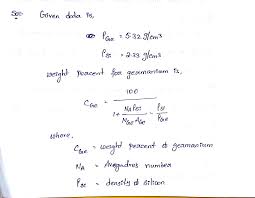 Sol:- Given data is,
ρGe = 5.32 g/cm3
ρSi = 2.33 g/cm3
weight percent for germanium is,
CGe = 100 / (1 + NA ρSi / NGe AGe - ρSi / ρGe)
where,
CGe = weight percent of germanium
NA = Avogadros number
ρSi = density of silicon